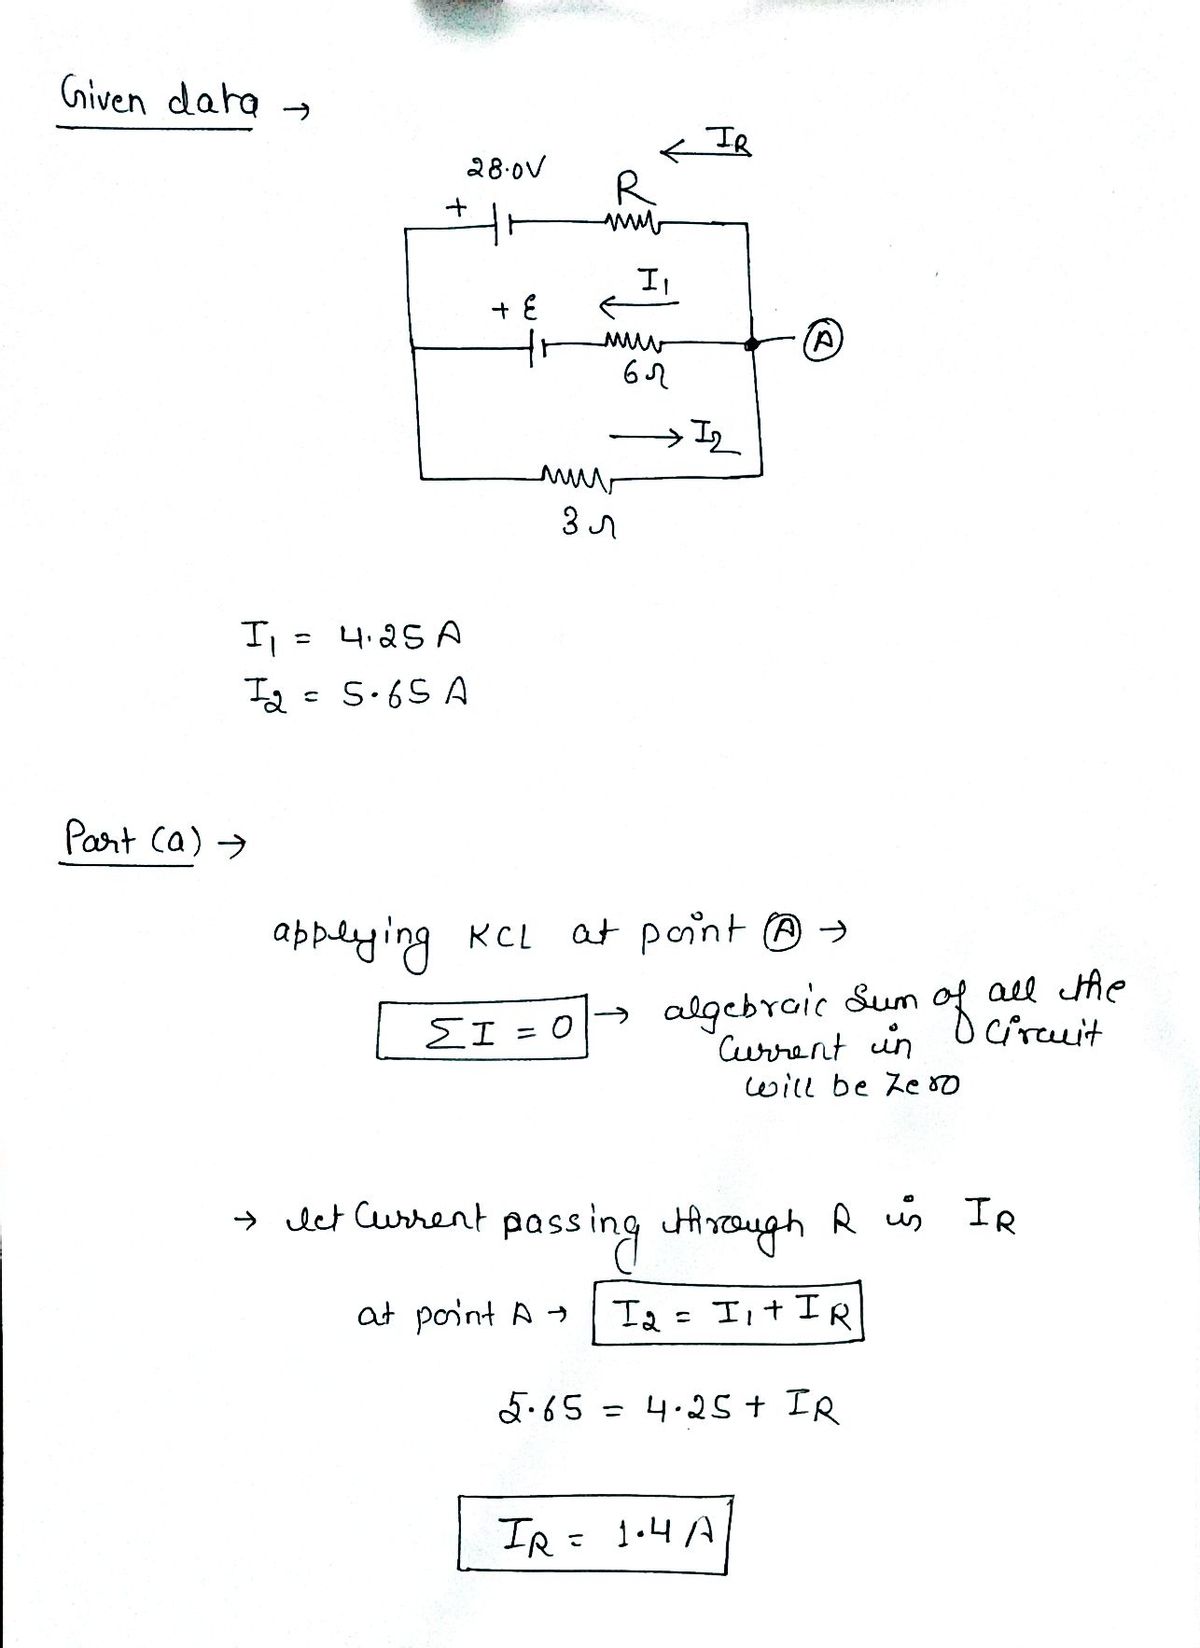 Given data →
← IR
28.0V
R
+
I1
←
+ ε
A
6Ω
→ I2
3Ω
I1 = 4.25 A
I2 = 5.65 A
Part (a) →
applying KCL at point A →
ΣI = 0 → algebraic sum of all the
current in circuit
will be zero
→ let current passing through R is IR
at point A → I2 = I1 + IR
5.65 = 4.25 + IR
IR = 1.4 A